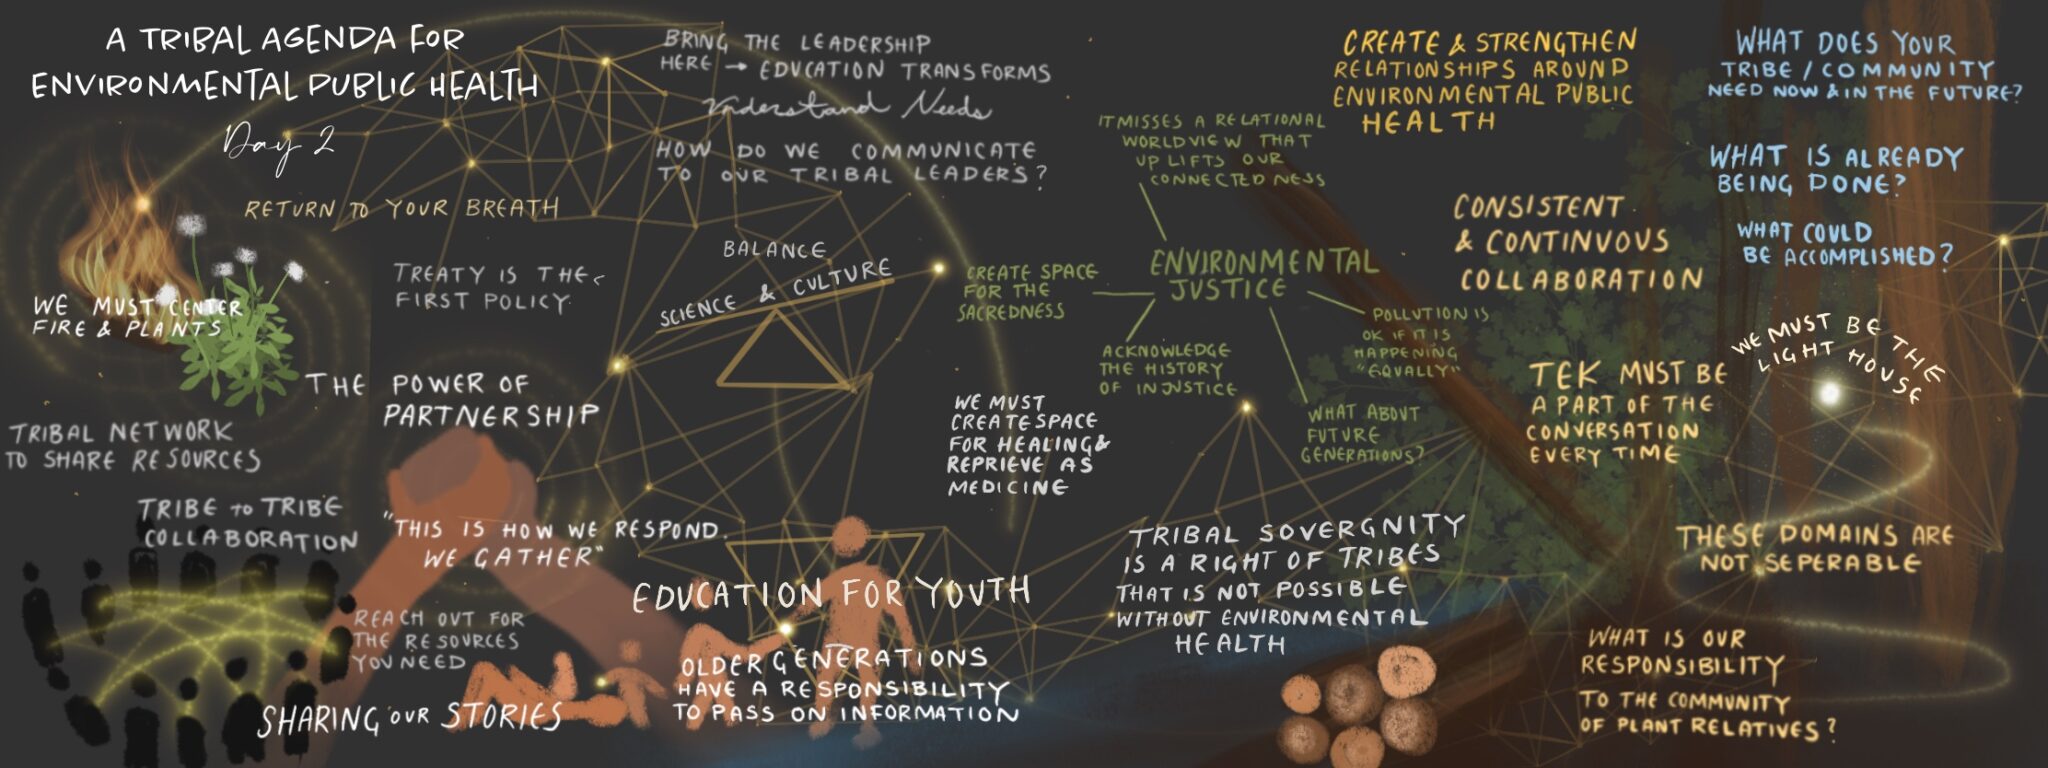 A TRIBAL AGENDA FOR
ENVIRONMENTAL PUBLIC HEALTH
Day 2
RETURN TO YOUR BREATH
WE MUST CENTER
FIRE & PLANTS
TREATY IS THE
FIRST POLICY
THE POWER OF
PARTNERSHIP
TRIBAL NETWORK
TO SHARE RESOURCES
TRIBE TO TRIBE
COLLABORATION
"THIS IS HOW WE RESPOND.
WE GATHER"
REACH OUT FOR
THE RESOURCES
YOU NEED
SHARING OUR STORIES
BRING THE LEADERSHIP
HERE → EDUCATION TRANSFORMS
Understand Needs
HOW DO WE COMMUNICATE
TO OUR TRIBAL LEADERS?
BALANCE
SCIENCE & CULTURE
EDUCATION FOR YOUTH
OLDER GENERATIONS
HAVE A RESPONSIBILITY
TO PASS ON INFORMATION
WE MUST
CREATE SPACE
FOR HEALING &
REPRIEVE AS
MEDICINE
IT MISSES A RELATIONAL
WORLDVIEW THAT
UPLIFTS OUR
CONNECTEDNESS
ENVIRONMENTAL
JUSTICE
CREATE SPACE
FOR THE
SACREDNESS
ACKNOWLEDGE
THE HISTORY
OF INJUSTICE
POLLUTION IS
OK IF IT IS
HAPPENING
"EQUALLY"
WHAT ABOUT
FUTURE
GENERATIONS?
TRIBAL SOVERGNITY
IS A RIGHT OF TRIBES
THAT IS NOT POSSIBLE
WITHOUT ENVIRONMENTAL
HEALTH
CREATE & STRENGTHEN
RELATIONSHIPS AROUND
ENVIRONMENTAL PUBLIC
HEALTH
CONSISTENT
& CONTINUOUS
COLLABORATION
TEK MUST BE
A PART OF THE
CONVERSATION
EVERY TIME
WHAT DOES YOUR
TRIBE / COMMUNITY
NEED NOW & IN THE FUTURE?
WHAT IS ALREADY
BEING DONE?
WHAT COULD
BE ACCOMPLISHED?
WE MUST BE THE
LIGHT HOUSE
THESE DOMAINS ARE
NOT SEPERABLE
WHAT IS OUR
RESPONSIBILITY
TO THE COMMUNITY
OF PLANT RELATIVES?